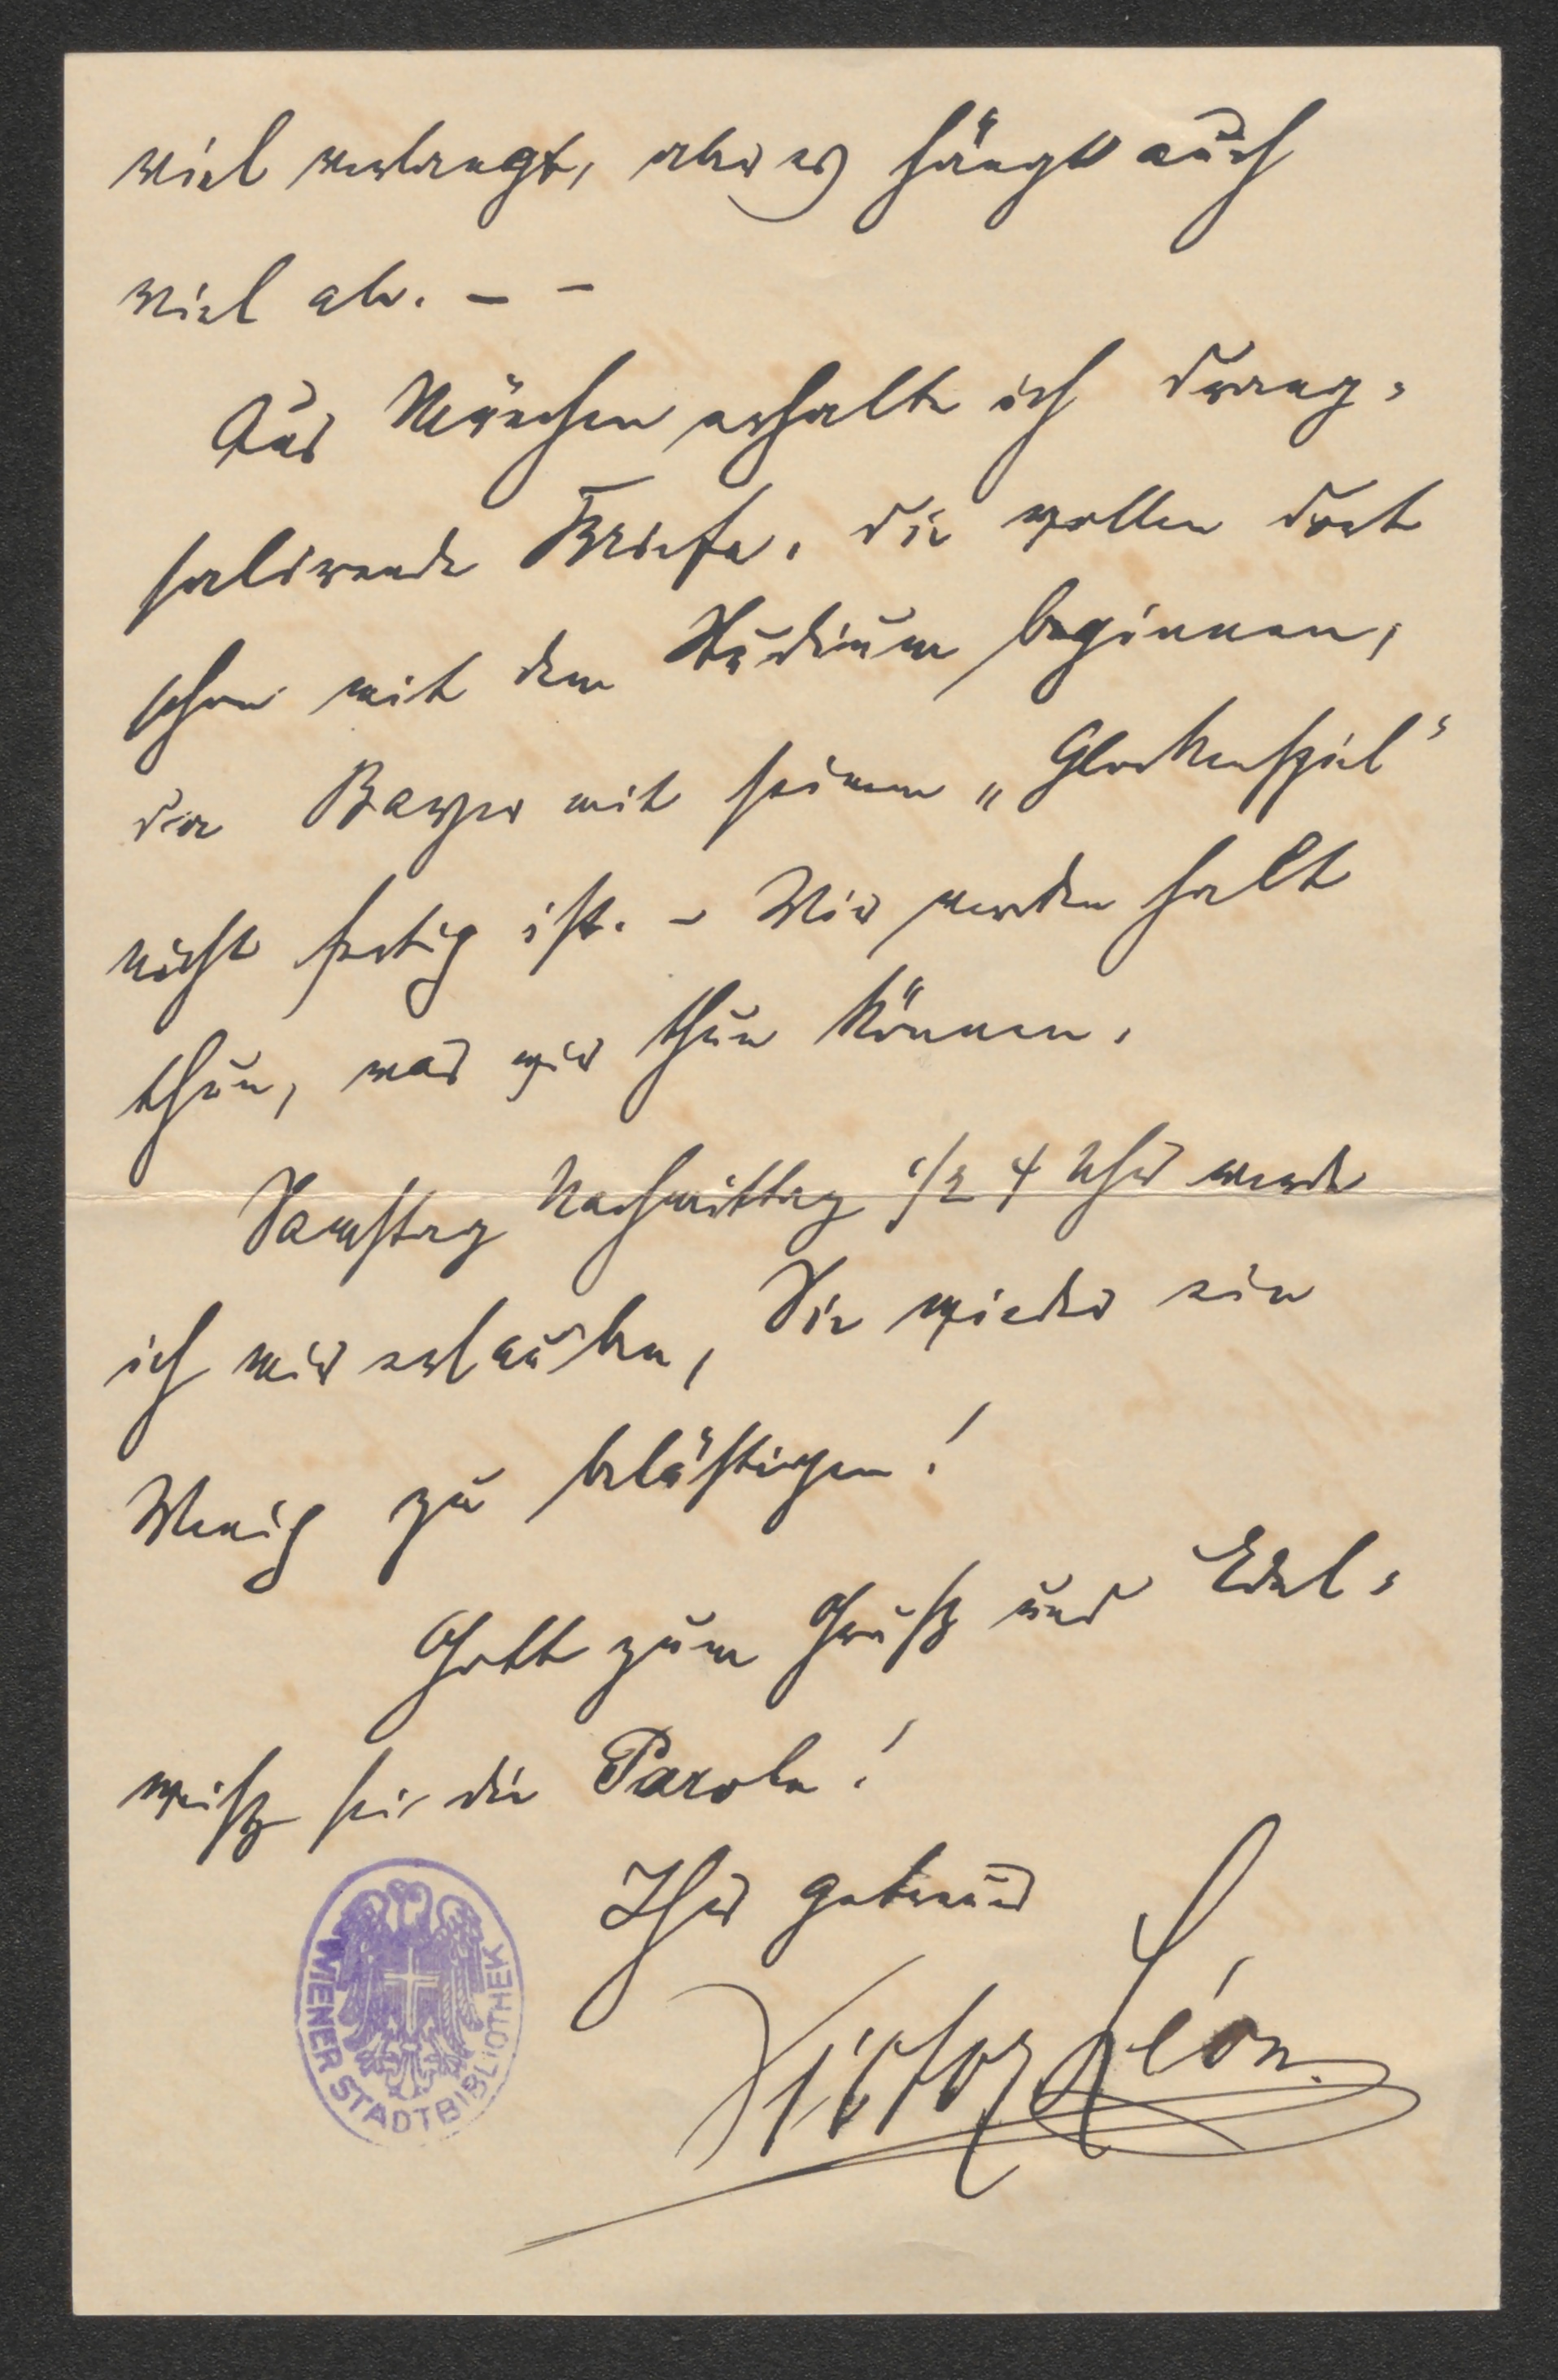 viel verlangt, aber es hängt auch
viel ab. – –
Aus München erhalte ich drang-
salirende Briefe. Die wollen dort
schon mit dem Studium beginnen,
da Bayer mit seinem „Glockenspiel“
nicht fertig ist. – Wir werden halt
thun, was wir thun können.
Samstag Nachmittag 1/2 4 Uhr werde
ich mir erlauben, Sie wieder ein
Wenig zu belästigen!
Gott zum Gruß und Edel-
weiß sei die Parole!
Ihr getreuer
Victor Léon.
WIENER STADTBIBLIOTHEK